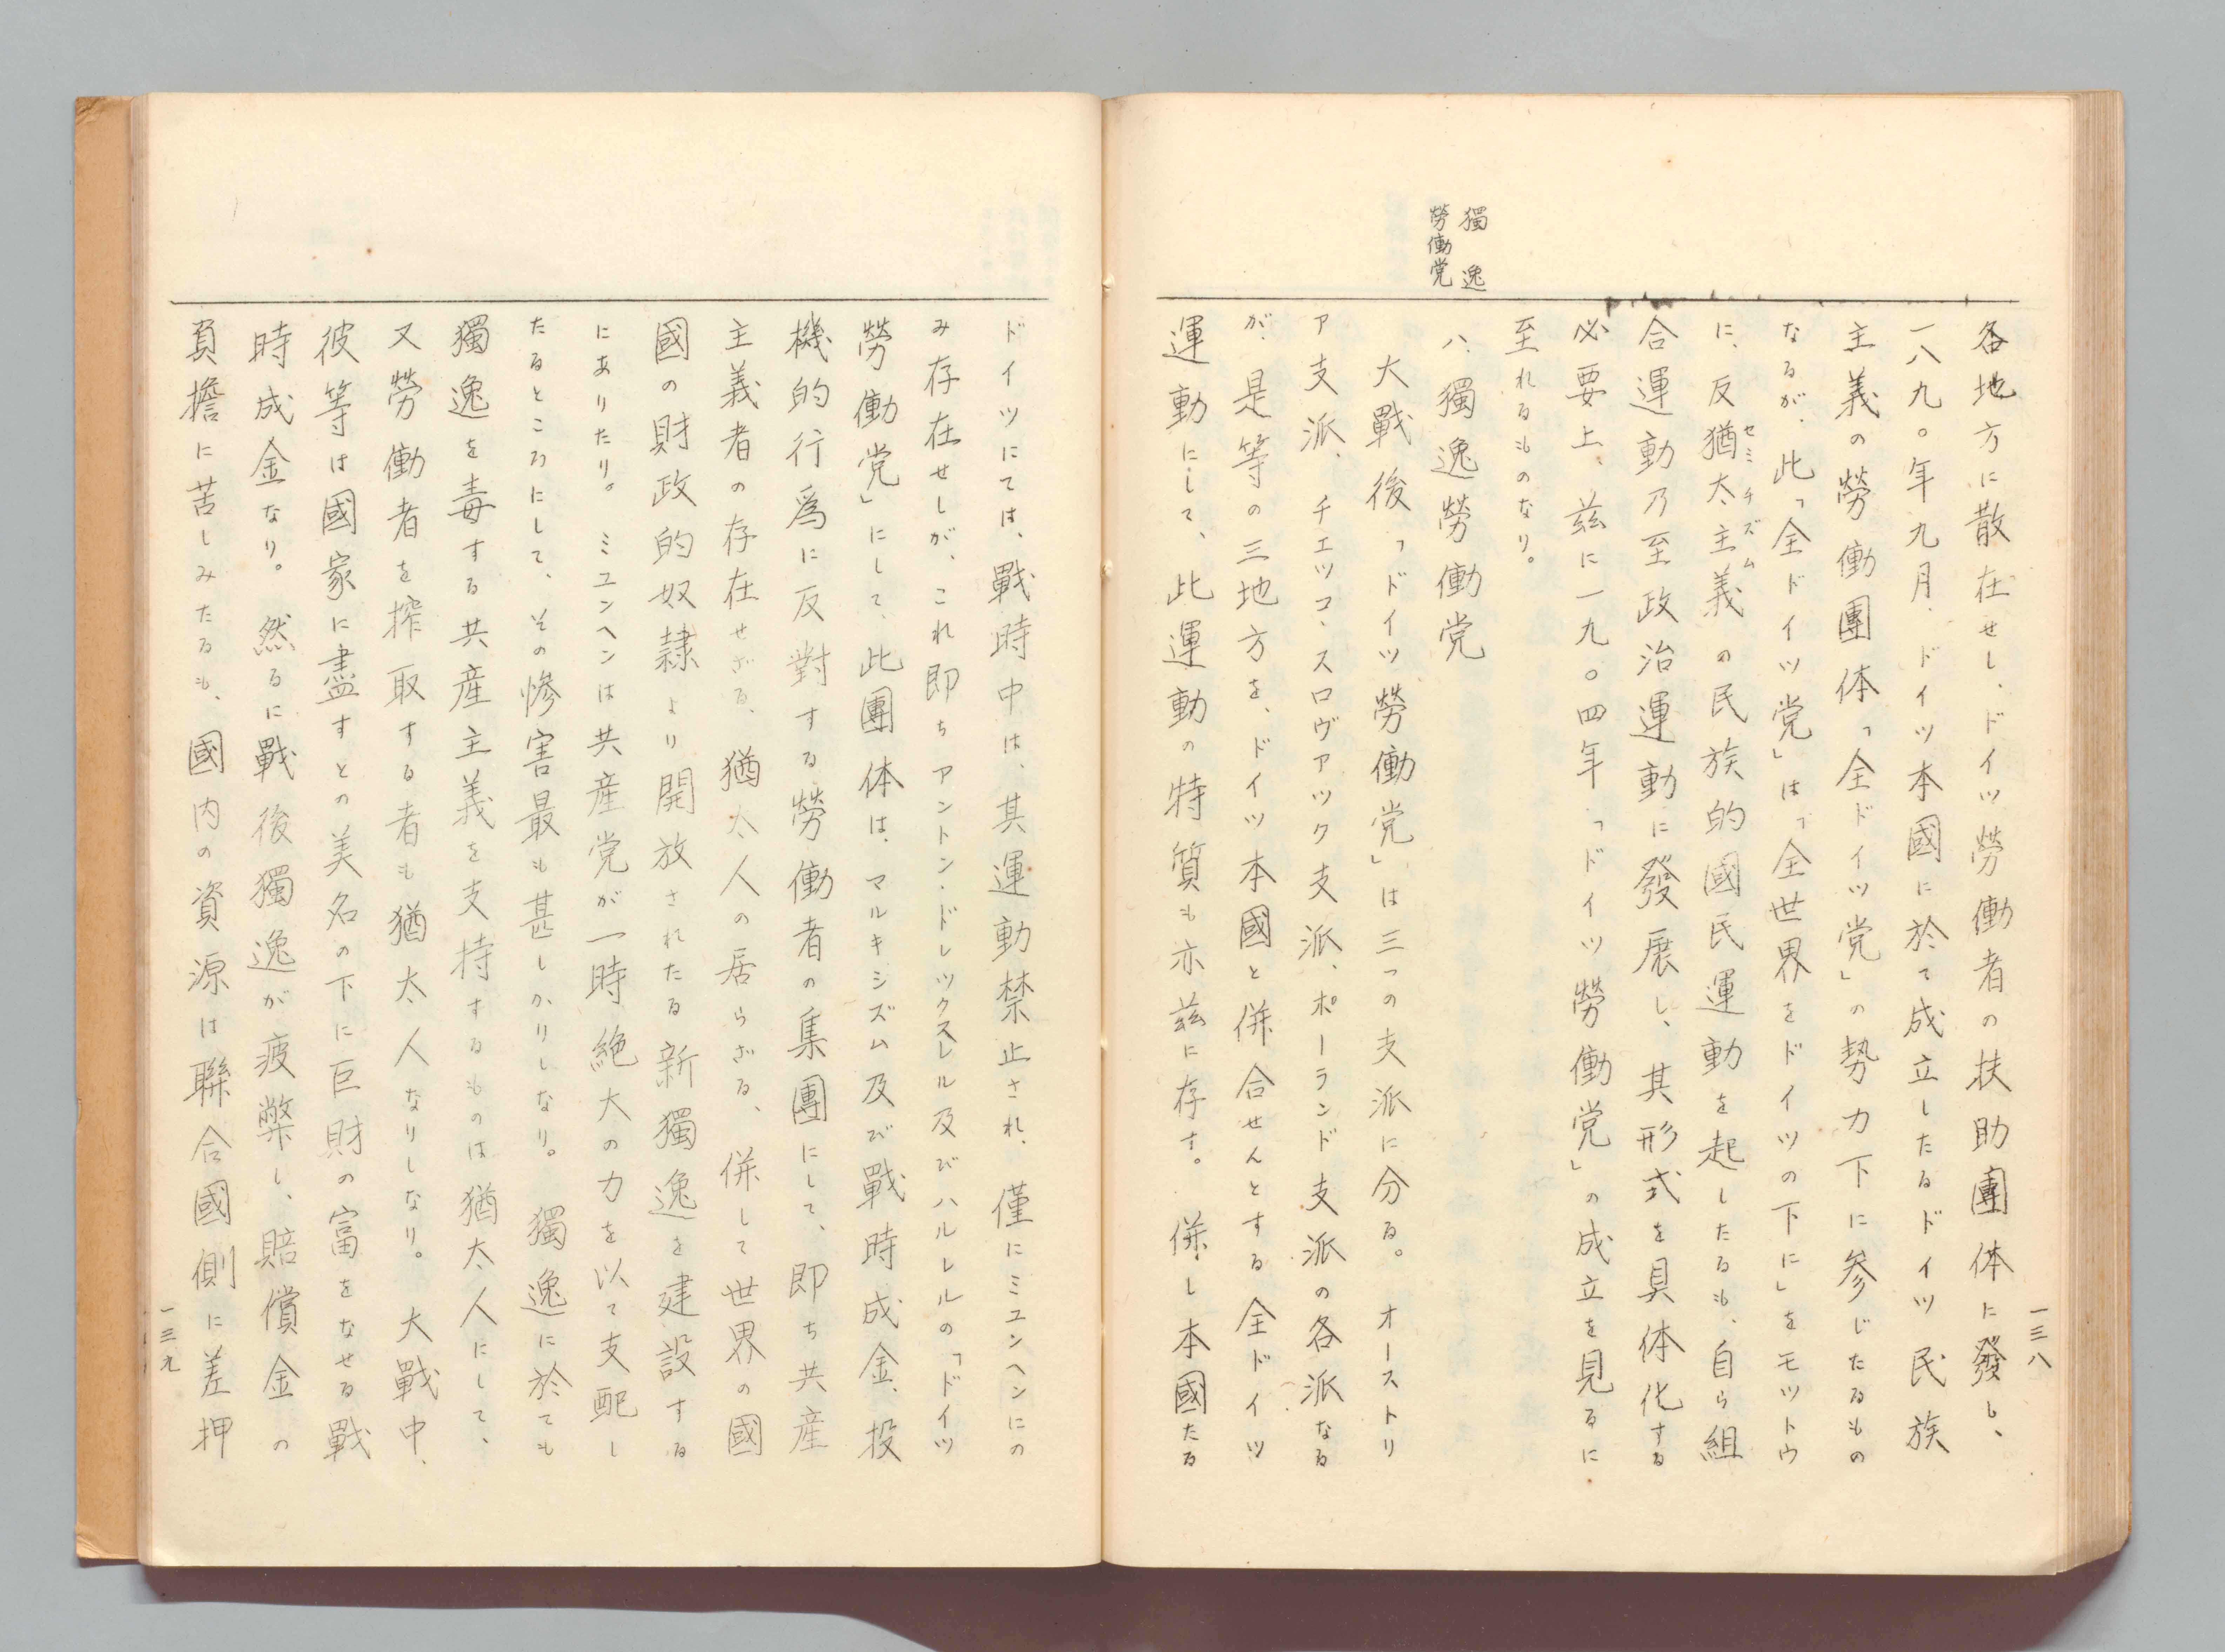 一三八
各地方に散在せし、ドイツ勞働者の扶助團体に發し、
一八九〇年九月、ドイツ本國に於て成立したるドイツ民族
主義の勞働團体「全ドイツ党」の勢力下に参じたるもの
なるが、此「全ドイツ党」は「全世界をドイツの下に」をモツトウ
に、反猶太主義の民族的國民運動を起したるも、自ら組
セミチズム
合運動乃至政治運動に發展し、其形式を具体化する
必要上、茲に一九〇四年「ドイツ勞働党」の成立を見るに
至れるものなり。
獨逸
勞働党
八、獨逸勞働党
大戰後「ドイツ勞働党」は三つの支派に分る。オーストリ
ア支派、チエツコ、スロヴアツク支派、ポーランド支派の各派なる
が、是等の三地方を、ドイツ本國と併合せんとする全ドイツ
運動にして、此運動の特質も亦茲に存す。併し本國たる
ドイツにては、戰時中は、其運動禁止され、僅にミユンヘンにの
み存在せしが、これ即ちアントン・ドレツクスレル及びハルレルの「ドイツ
勞働党」にして、此團体は、マルキシズム及び戰時成金、投
機的行爲に反對する勞働者の集團にして、即ち共産
主義者の存在せざる、猶太人の居らざる、併して世界の國
國の財政的奴隷より開放されたる新獨逸を建設する
にありたり。ミユンヘンは共産党が一時絶大の力を以て支配し
たるところにして、その惨害最も甚しかりしなり。獨逸に於ても
獨逸を毒する共産主義を支持するものは猶太人にして、
又勞働者を搾取する者も猶太人なりしなり。大戰中、
彼等は國家に盡すとの美名の下に巨財の富をなせる戰
時成金なり。然るに戰後獨逸が疲弊し、賠償金の
負擔に苦しみたるも、國内の資源は聯合國側に差押
一三九